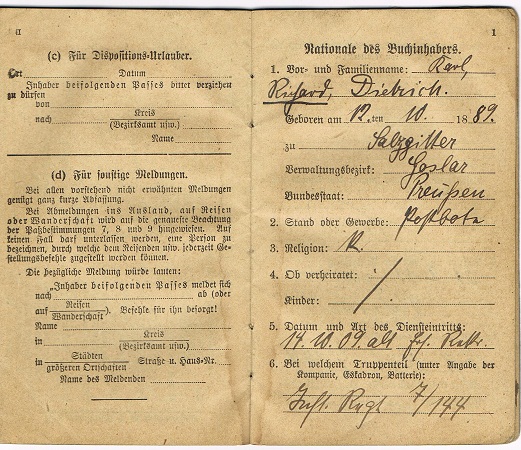 II
(c) Für Dispositions-Urlauber.
Ort Datum
Inhaber beifolgenden Passes bittet verziehen
zu dürfen
von
nach Kreis
(Bezirksamt usw.)
Name
(d) Für sonstige Meldungen.
Bei allen vorstehend nicht erwähnten Meldungen
genügt ganz kurze Abfassung.
Bei Abmeldungen ins Ausland, auf Reisen
oder Wanderschaft wird auf die genaueste Beachtung
der Paßbestimmungen 7, 8 und 9 hingewiesen. Auf
keinen Fall darf unterlassen werden, eine Person zu
bezeichnen, durch welche dem Reisenden usw. jederzeit Ge-
stellungsbefehle zugestellt werden können.
Die bezügliche Meldung würde lauten:
„Inhaber beifolgenden Passes meldet sich
nach ab (oder
auf Reisen
Wanderschaft). Befehle für ihn besorgt!
Name
in Kreis
(Bezirksamt usw.)
in Städten
größeren Ortschaften Straße u. Haus-Nr.
Name des Meldenden
1
Nationale des Buchinhabers.
1. Vor- und Familienname: Karl,
Richard, Dietrich.
Geboren am 12.ten 10. 1889.
zu Salzgitter
Verwaltungsbezirk: Goslar
Bundesstaat: Preußen
2. Stand oder Gewerbe: Postbote
3. Religion:
4. Ob verheiratet: /
Kinder:
5. Datum und Art des Diensteintritts:
14. 10. 09. als Rekr.
6. Bei welchem Truppenteil (unter Angabe der
Kompanie, Eskadron, Batterie):
Inft. Regt 7/144